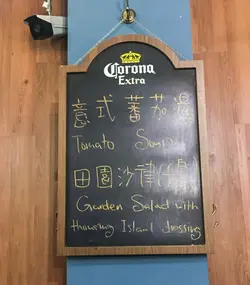 Corona
Extra
意式蕃茄湯
Tomato Soup
田園沙律
Garden Salad with
Thousing Island dressing